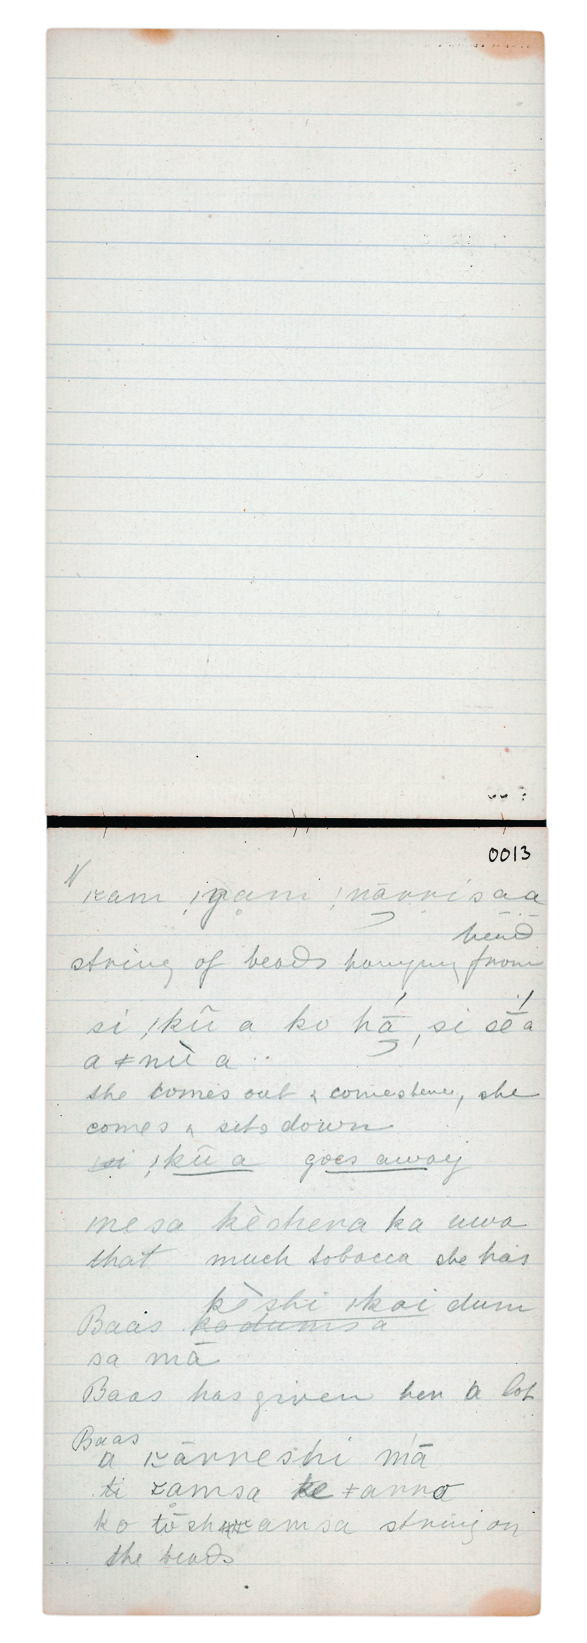 0013
N
ɪzam !ŋam !nārrisaa
head
string of beads hanging from
si !kũ a ko hā, si sēa
a ǂnù a
she comes out & comes here, she
comes & sits down
si !kũ a goes away
me sa kèchena ka uwa
that much tobacco she has
kèshi ɪkai dum
Baas kodumsa
sa mā
Baas has given her a lot
Baas
a ɪzārneshi mā
ti zamsa ke ǂanno
ko tòsh zamsa string on
the beads